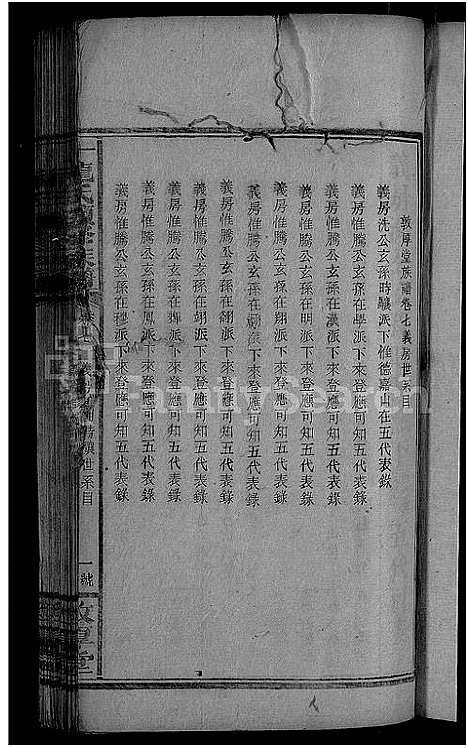 敦厚堂族譜卷七義房世系目
義房洗公玄孫時驤派下惟德嘉山在五代表錄
義房惟騰公玄孫在學派下來登應可知五代表錄
義房惟騰公玄孫在漢派下來登應可知五代表錄
義房惟騰公玄孫在明派下來登應可知五代表錄
義房惟騰公玄孫在翔派下來登應可知五代表錄
義房惟騰公玄孫在 派下來登應可知五代表錄
義房惟騰公玄孫在 派下來登應可知五代表錄
義房惟騰公玄孫在翊派下來登應可知五代表錄
義房惟騰公玄孫在鳳派下來登應可知五代表錄
義房惟騰公玄孫在 派下來登應可知五代表錄
世系目
一號
敦厚堂
FamilySearch